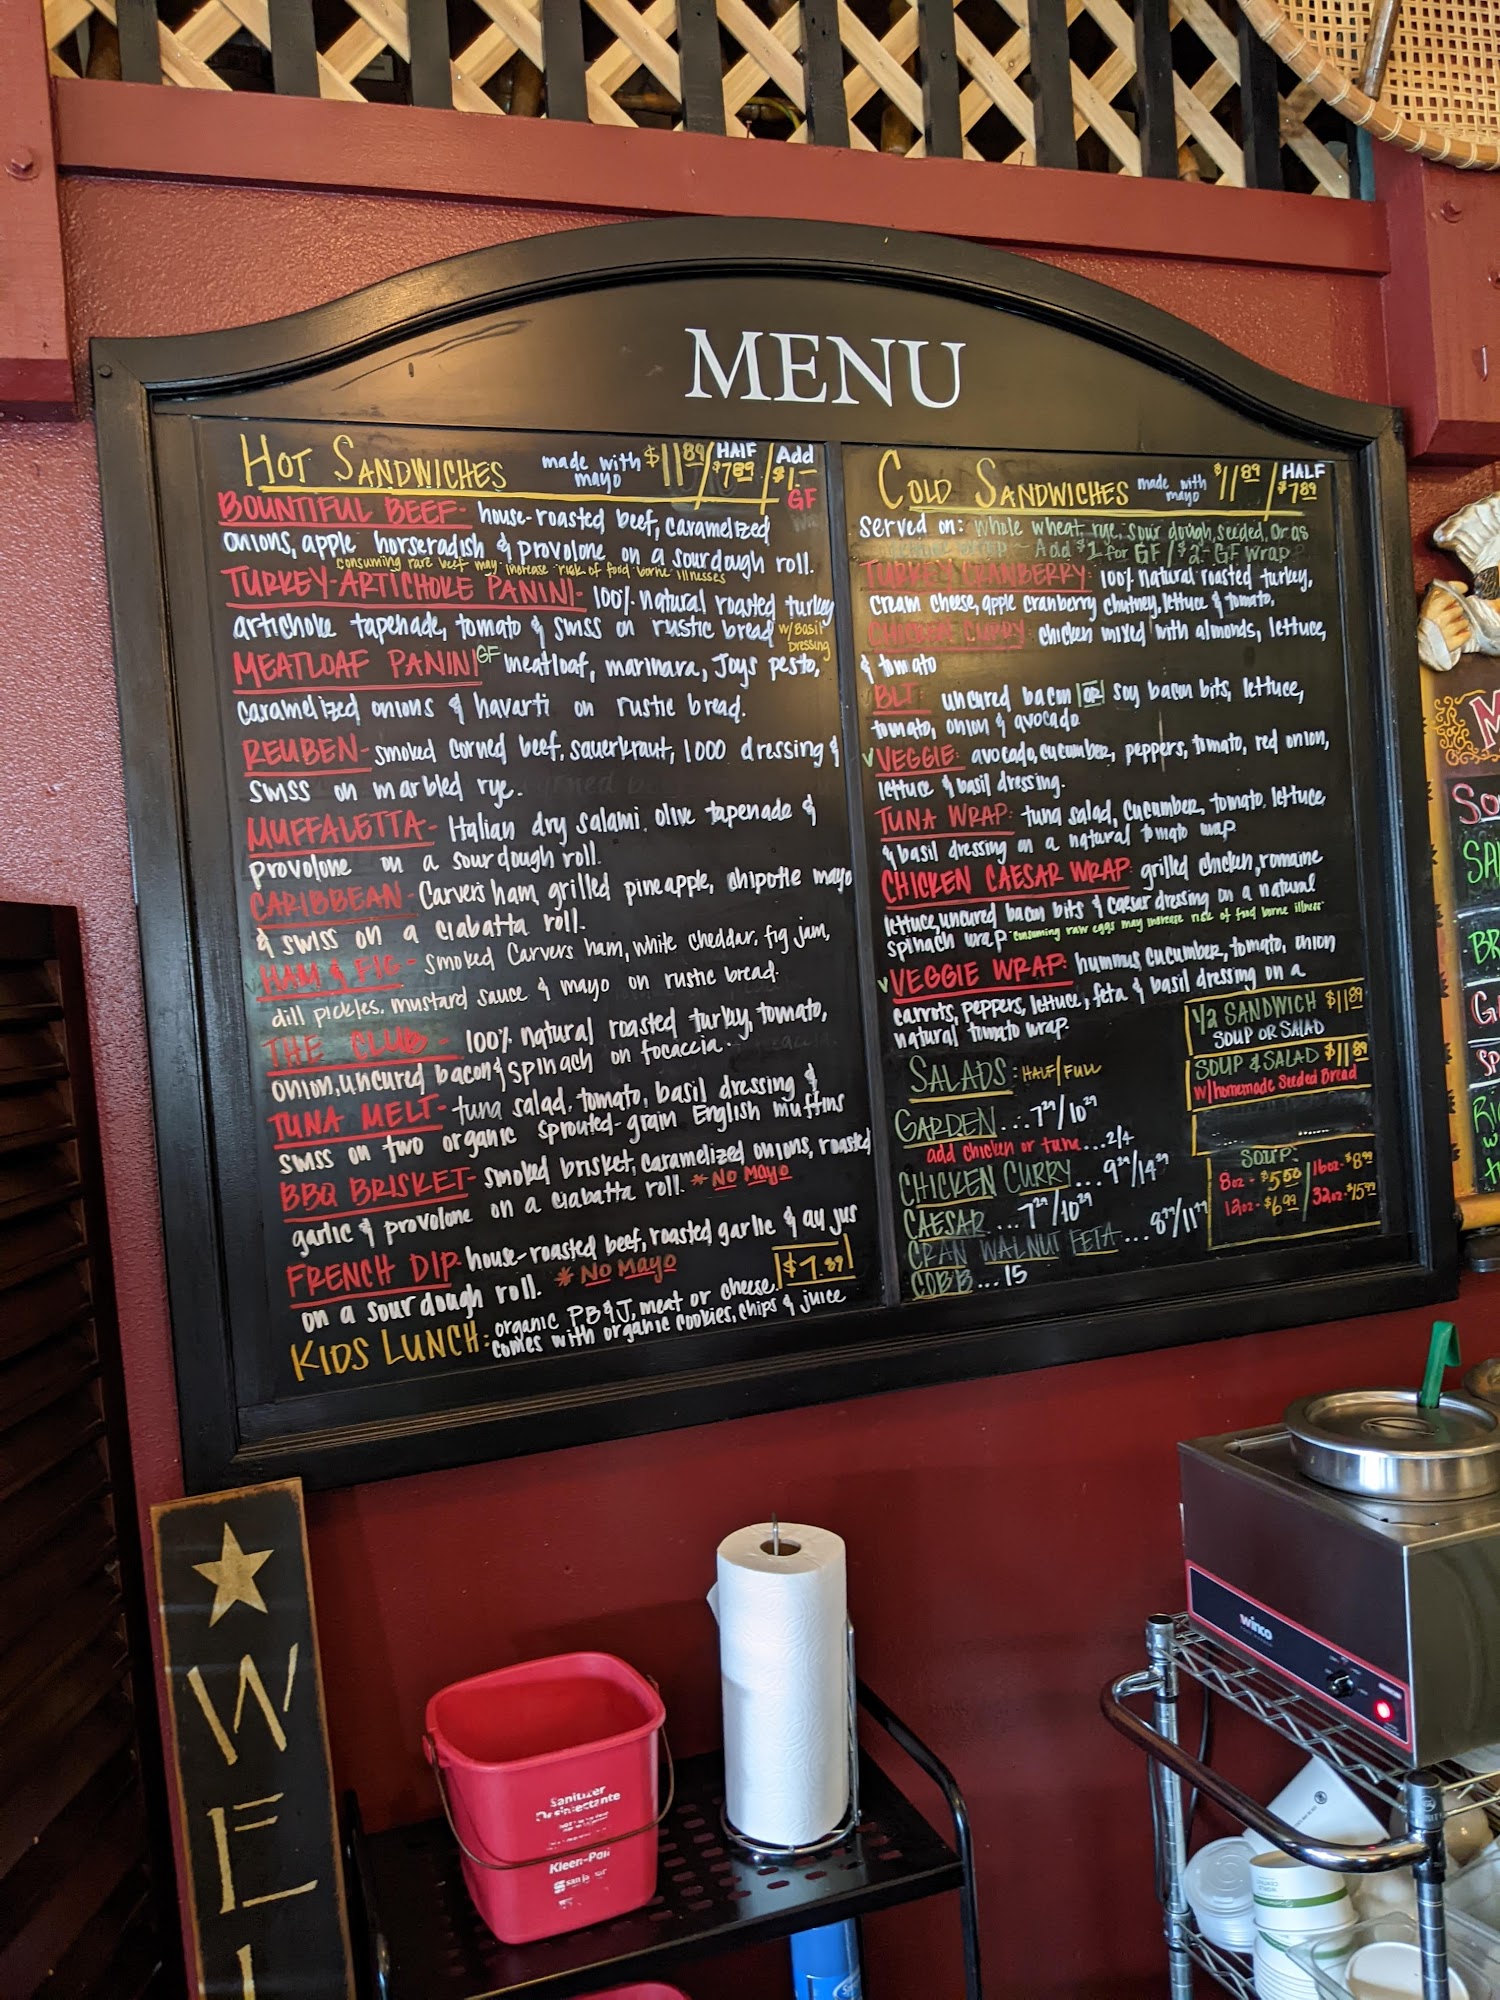 MENU
HOT SANDWICHES made with mayo $11.89 / HALF $7.89 / Add $1.- GF
BOUNTIFUL BEEF- house-roasted beef, caramelized
onions, apple horseradish & provolone on a sourdough roll.
consuming rare beef may increase risk of food borne illnesses
TURKEY-ARTICHOKE PANINI- 100% natural roasted turkey
artichoke tapenade, tomato & swiss on rustic bread w/Basil Dressing
MEATLOAF PANINI GF meatloaf, marinara, Joys pesto,
caramelized onions & havarti on rustic bread.
REUBEN- smoked corned beef, sauerkraut, 1000 dressing &
swiss on marbled rye.
MUFFALETTA- Italian dry salami, olive tapenade &
provolone on a sourdough roll.
CARIBBEAN- Carvers ham, grilled pineapple, chipotle mayo
& swiss on a ciabatta roll.
HAM & FIG- smoked Carvers ham, white cheddar, fig jam,
dill pickles, mustard sauce & mayo on rustic bread.
THE CLUB- 100% natural roasted turkey, tomato,
onion, uncured bacon & spinach on focaccia.
TUNA MELT- tuna salad, tomato, basil dressing &
swiss on two organic sprouted-grain English muffins
BBQ BRISKET- smoked brisket, caramelized onions, roasted
garlic & provolone on a ciabatta roll. *No Mayo
FRENCH DIP- house-roasted beef, roasted garlic & au jus
on a sourdough roll. *No Mayo
$7.89
KIDS LUNCH: organic PB&J, meat or cheese,
comes with organic cookies, chips & juice
COLD SANDWICHES made with mayo $11.89 / HALF $7.89
served on: whole wheat, rye, sour dough, seeded, or as
wrap ~ Add $1 for GF / $2- GF wrap
TURKEY CRANBERRY: 100% natural roasted turkey,
cream cheese, apple cranberry chutney, lettuce & tomato.
CHICKEN CURRY: chicken mixed with almonds, lettuce,
& tomato
BLT: uncured bacon OR soy bacon bits, lettuce,
tomato, onion & avocado
V VEGGIE: avocado, cucumber, peppers, tomato, red onion,
lettuce & basil dressing.
TUNA WRAP: tuna salad, cucumber, tomato, lettuce
& basil dressing on a natural tomato wrap
CHICKEN CAESAR WRAP: grilled chicken, romaine
lettuce, uncured bacon bits & caesar dressing on a natural
spinach wrap consuming raw eggs may increase risk of food borne illness
V VEGGIE WRAP: hummus cucumber, tomato, onion
carrots, peppers, lettuce, feta & basil dressing on a
natural tomato wrap.
1/2 SANDWICH $11.89
SOUP OR SALAD
SOUP & SALAD $11.89
w/homemade Seeded Bread
SALADS: HALF/FULL
GARDEN...7.29/10.29
add chicken or tuna...2/4
CHICKEN CURRY...9.29/14.29
CAESAR...7.29/10.29
CRAN WALNUT FETA...8.29/11.29
COBB...15
SOUP:
8oz - $5.50 16oz - $8.99
12oz - $6.99 32oz - $15.99
WEL
Sanitizer
Desinfectante
Kleen-Pail
winco